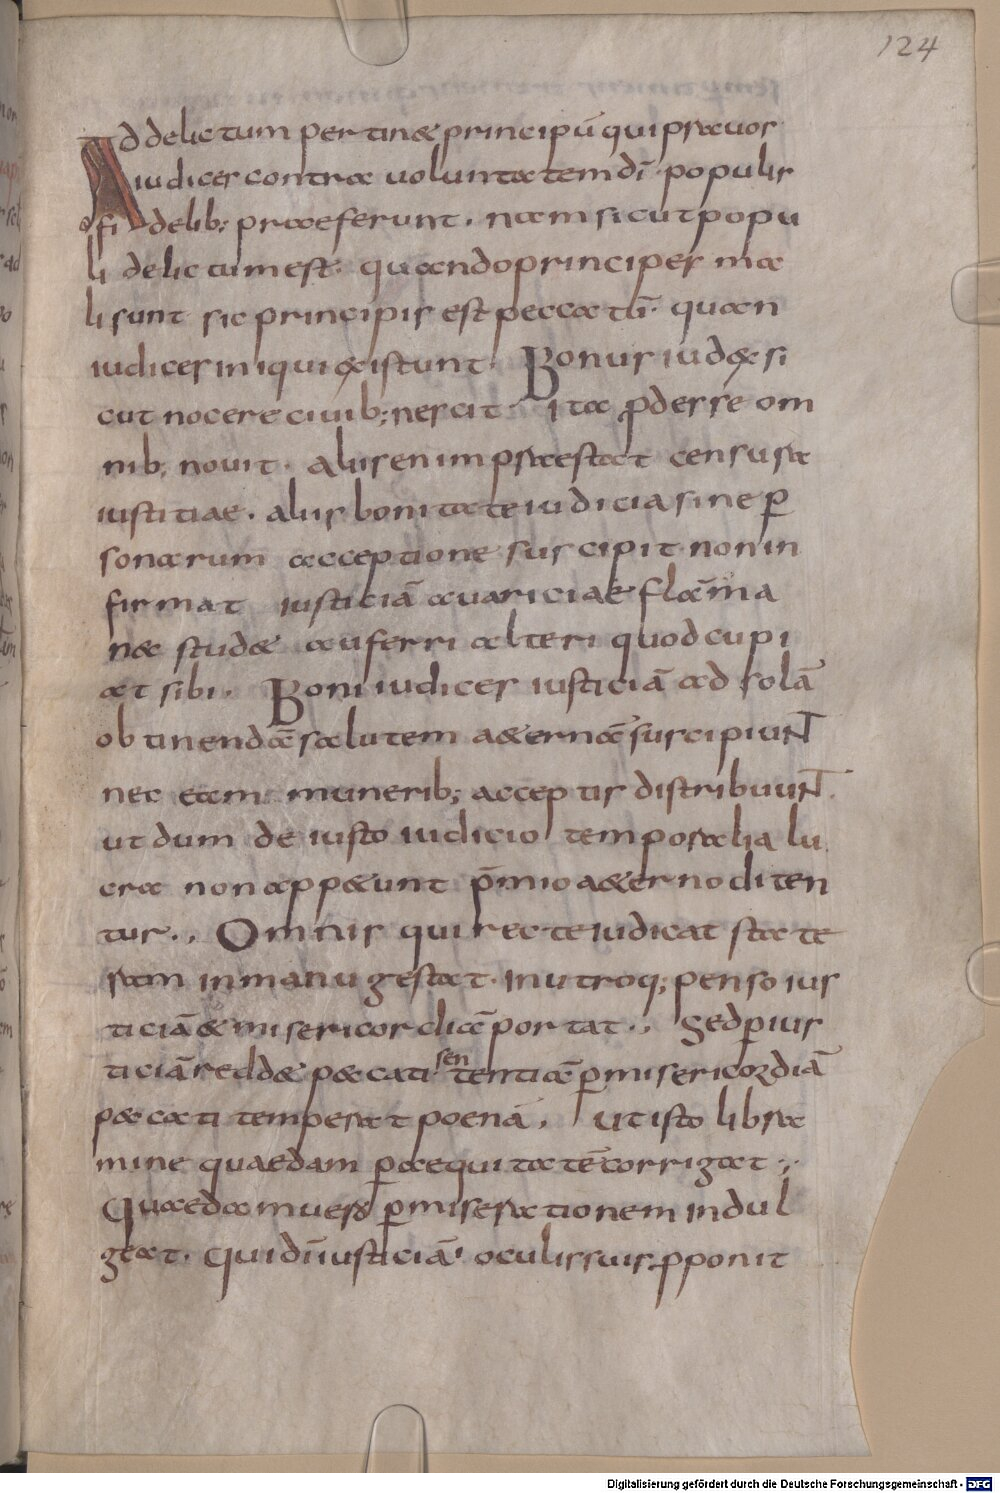 124
Ad delictum pertin& principū qui prauos
iudices contra uoluntatem dī. populis
fidelib; praeferunt. nam sicut popu
li delictum est. quando principes ma
li sunt sic principis est peccatū. quan
iudices iniqui existunt. Bonus iudex si
cut nocere ciuib; nescit. ita ꝓdesse om
nib; nouit. alius enim praestat censura
iustitiae. alius bonitate iudicia sine ꝑ
sonarum acceptione suscipit. non in
firmat iusticiā auariciae flāma
nec stud& auferri alteri quod cupi
at sibi. Boni iudices iusticiā ad solā
obtinendā salutem a&ernā suscipiunt
nec eam munerib; acceptis distribuunt.
ut dum de iusto iudicio temporalia lu
cra non app&unt p̄mio a&erno diten
tur. Omnis qui recte iudicat state
ram in manu gestat. in utroq; penso ius
ticiā & misericordiā portat. Sed ꝑ ius
ticiā redd& peccati sententiā ꝑ misericordiā
peccati temperat poenā. Ut isto libra
mine quaedam ꝑ aequitatē corrigat.
Quaedam uero ꝑ miserationem indul
geat. Qui dī iusticiā oculis suis ꝓponit
Digitalisierung gefördert durch die Deutsche Forschungsgemeinschaft - DFG